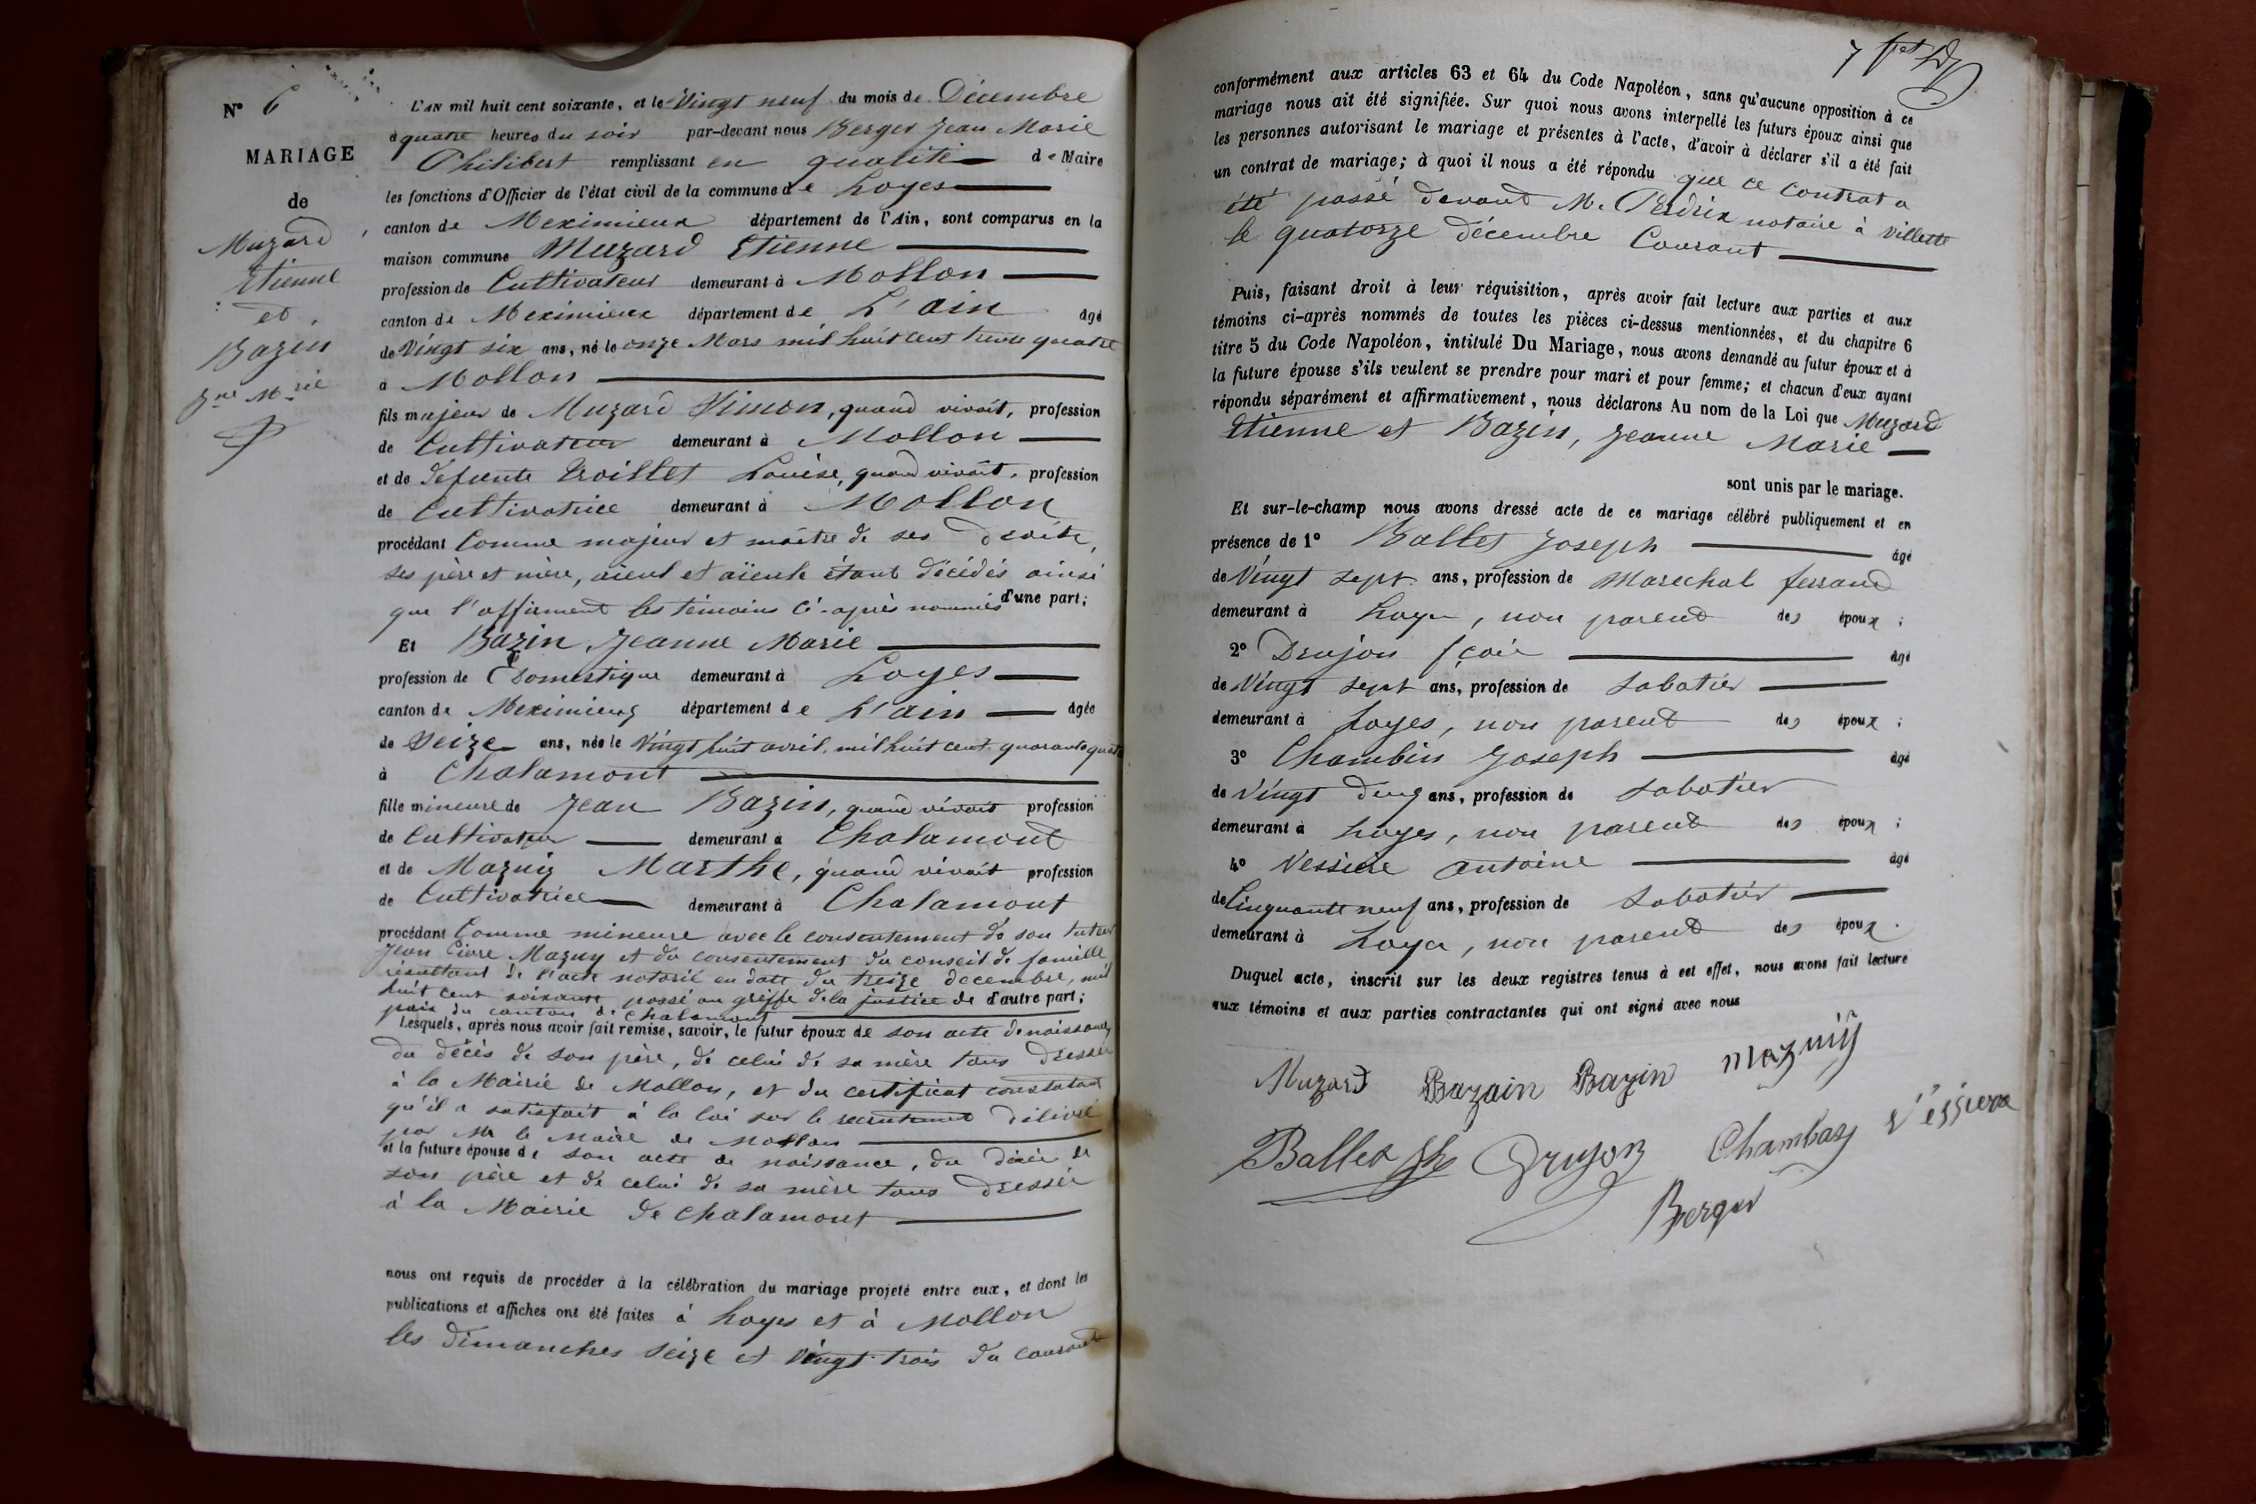 N° 6
MARIAGE
de
Muzard
Etienne
et
Bazin
Jne Mrie
L'AN mil huit cent soixante, et le Vingt neuf du mois de Décembre
à quatre heures du soir par-devant nous Berger Jean Marie
Philibert remplissant en qualité de Maire
les fonctions d'Officier de l'état civil de la commune de Loyes
canton de Meximieux département de l'Ain, sont comparus en la
maison commune Muzard Etienne
profession de Cultivateur demeurant à Mollon
canton de Meximieux département de L'ain âgé
de Vingt six ans, né le onze Mars mil huit cent trente quatre
à Mollon
fils majeur de Muzard Simon, quand vivait, profession
de Cultivateur demeurant à Mollon
et de défunte Troillet Louise, quand vivait, profession
de Cultivatrice demeurant à Mollon
procédant Comme majeur et maître de ses droits,
ses père et mère, aïeul et aïeule étant décédés ainsi
que l'affirment les témoins ci-après nommés d'une part;
Et Bazin, Jeanne Marie
profession de Domestique demeurant à Loyes
canton de Meximieux département de L'ain âgée
de Seize ans, née le Vingt huit avril, mil huit cent quarante quatre
à Chalamont
fille mineure de Jean Bazin, quand vivait profession
de Cultivateur demeurant à Chalamont
et de Mazuiy Marthe, quand vivait profession
de Cultivatrice demeurant à Chalamont
procédant Comme mineure avec le consentement de son tuteur
Jean Mazuy et du consentement du conseil de famille
résultant de l'acte notorié en date du treize décembre, mil
huit cent soixante, passé au greffe de la justice de d'autre part;
paix du canton de Chalamont
Lesquels, après nous avoir fait remise, savoir, le futur époux de son acte de naissance,
du décès de son père, de celui de sa mère tous dressés
à la Mairie de Mollon, et du certificat constatant
qu'il a satisfait à la loi sur le recrutement délivré
par Mr le Maire de Mollon
et la future épouse de son acte de naissance, du décès de
son père et de celui de sa mère tous dressés
à la Mairie de Chalamont
nous ont requis de procéder à la célébration du mariage projeté entre eux, et dont les
publications et affiches ont été faites à Loyes et à Mollon
les dimanches seize et vingt-trois du courant
conformément aux articles 63 et 64 du Code Napoléon, sans qu'aucune opposition à ce
mariage nous ait été signifiée. Sur quoi nous avons interpellé les futurs époux ainsi que
les personnes autorisant le mariage et présentes à l'acte, d'avoir à déclarer s'il a été fait
un contrat de mariage; à quoi il nous a été répondu que ce Contrat a
été passé devant Me Perdrix notaire à Villette
le quatorze décembre Courant
Puis, faisant droit à leur réquisition, après avoir fait lecture aux parties et aux
témoins ci-après nommés de toutes les pièces ci-dessus mentionnées, et du chapitre 6
titre 5 du Code Napoléon, intitulé Du Mariage, nous avons demandé au futur époux et à
la future épouse s'ils veulent se prendre pour mari et pour femme; et chacun d'eux ayant
répondu séparément et affirmativement, nous déclarons Au nom de la Loi que Muzard
Etienne et Bazin, Jeanne Marie
sont unis par le mariage.
Et sur-le-champ nous avons dressé acte de ce mariage célébré publiquement et en
présence de 1° Ballet Joseph âgé
de Vingt sept ans, profession de Marechal ferrand
demeurant à Loyes, non parent des époux;
2° Drujon fçois âgé
de Vingt sept ans, profession de Sabotier
demeurant à Loyes, non parent des époux;
3° Chambin Joseph âgé
de Vingt deux ans, profession de Sabotier
demeurant à Loyes, non parent des époux;
4° Vessiere antoine âgé
de Cinquante neuf ans, profession de Sabotier
demeurant à Loyes, non parent des époux.
Duquel acte, inscrit sur les deux registres tenus à cet effet, nous avons fait lecture
aux témoins et aux parties contractantes qui ont signé avec nous
Muzard Bazain Bazin Mazuiy
Ballet Drujon Vessiera
Berger